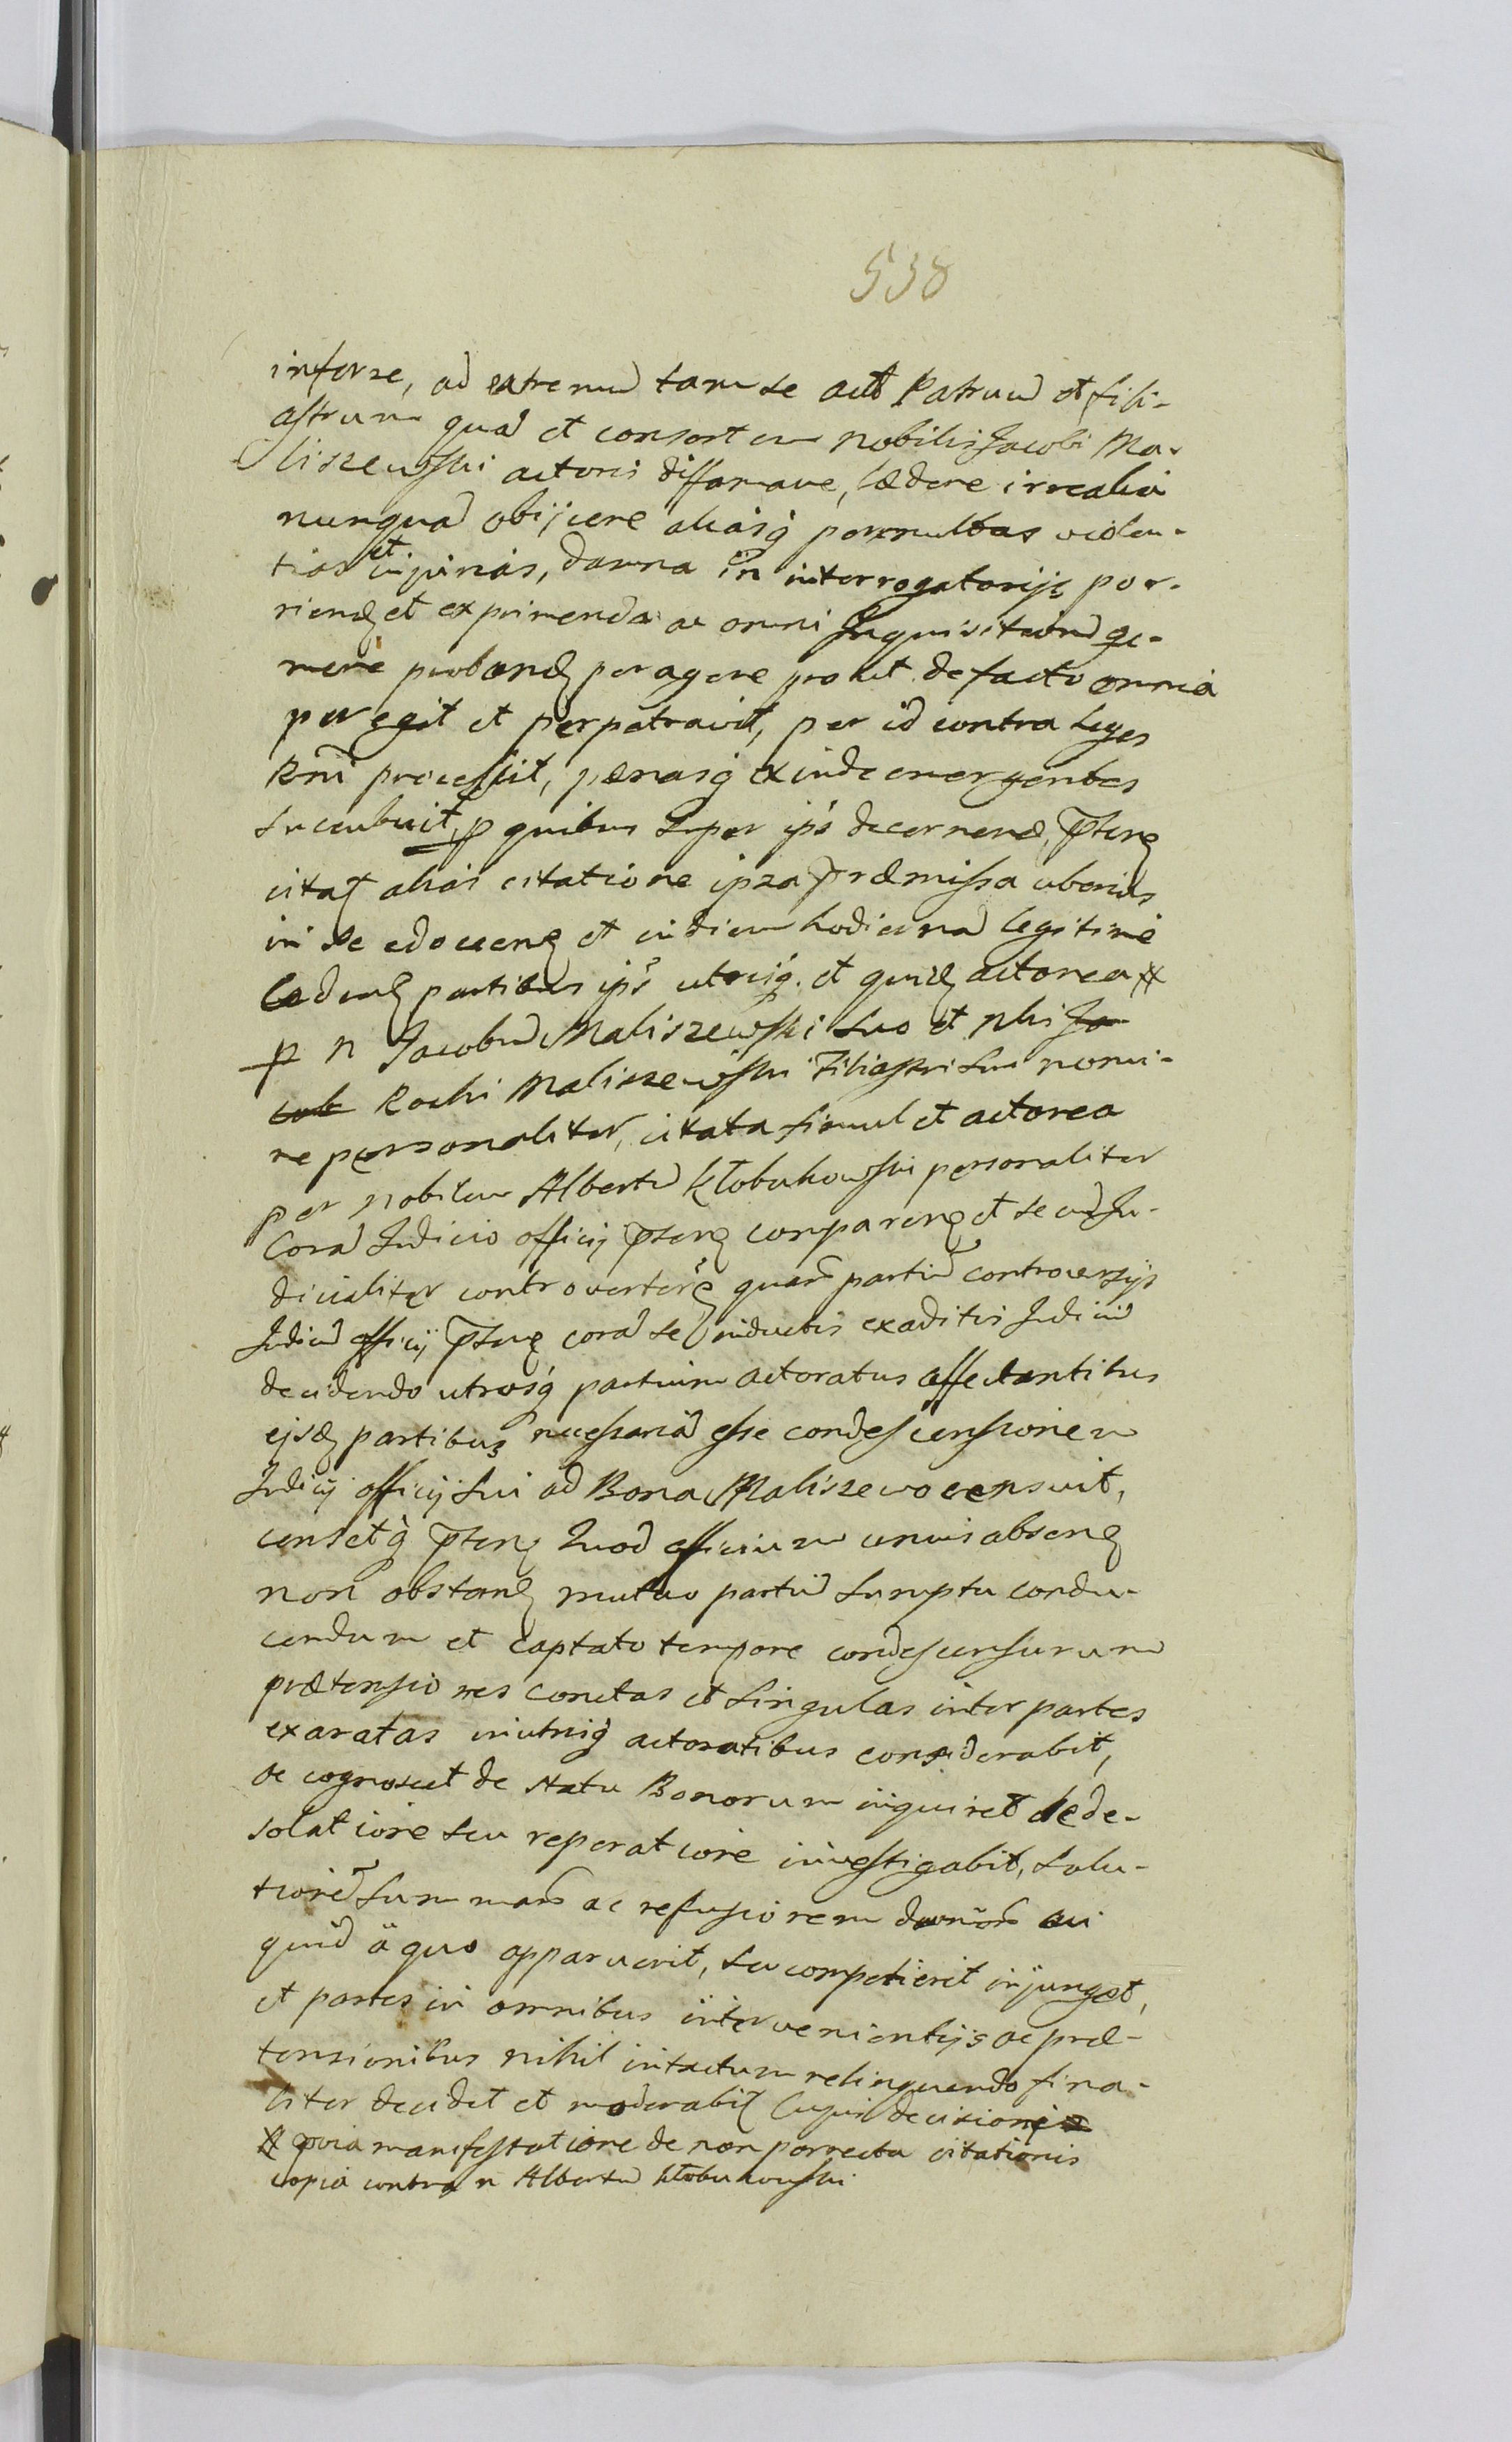 538
inferre, ad extremu tam se actt Patruu et fili-
astrum qua et consortem nobilis Jacobi Ma-
liszewski actoris diffamare, lædere irrealia
nunquad obijcere aliasq permultas violen-
tias et injurias, damna in interrogatorijs por-
riend et exprimenda ac omni Inquisitiond ge-
nere proband peragere prout de facto omnia
peregit et perpetravit, per id contra Leges
Rni processit, pænasq exinde emergentes
succubuit, p quibus super ips decernend, pten
citat alias citatione ipsa præmissa uberius
in se edocen et in diem hodiernad legitime
caden partibus ips utrisq. et quid actorea #
p n Jacobu Maliszewski suo et nlis Ja
cob Rochi Maliszewski Filiastri sui nomi-
ne personaliter, citata simul et actorea
per nobilem Albertu Kłobukowski personaliter
Cora Judicio officij pten comparen et se cu Ju-
dicialiter controverten quar partiu controversijs
Judiciu officij pten cora se inductis exaditis Judiciu
decidendo utrosq partium actoratus affectantibus
ejsd partibus necessaria esse condescensionem
Judicij officij sui ad Bona Maliszewo censuit,
censetq pten Quod officium unius absen
non obstan mutuo partiu sumptu condu-
cendum et captato tempore condescensurum
prætensiones cunctas et singulas inter partes
exaratas in utrisq actoratibus considerabit,
ac cognoscet de statu Bonorum inquiret de de-
solatione seu reperatione investigabit, solu-
tione summar ac refusionem damnor cui
quid a quo apparuerit, seu competierit injunget,
et partes in omnibus intervenientijs ac præ-
tensionibus nihil intactum relinquendo fina-
liter decidet et moderabit Cujus decisionis
# pvia manifestatione de non porrecta citationis
copia contra n Albertu Kłobukowski